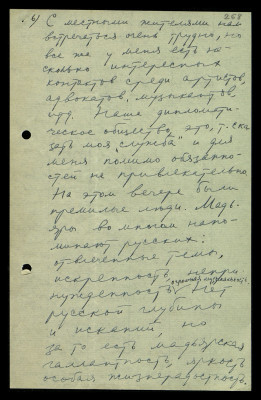 6) С местными жителями нам 268
встречаться очень трудно, но
все же у меня есть не-
сколько интересных
контактов среди артистов,
адвокатов, музыкантов
итд. Наше дипломати-
ческое общество, это, т. ска-
зать моя „служба“ и для
меня помимо обязанно-
стей не привлекательна.
На этом вечере были
премилые люди. Мадь-
яры во многом напо-
минают русских:
отвлеченные темы,
искренность, непри-
нужденность, огромная музыкальность. Нет
русской глубины
и исканий, но
за то есть мадьярская
галлантность, яркость
особая жизнерадостность.